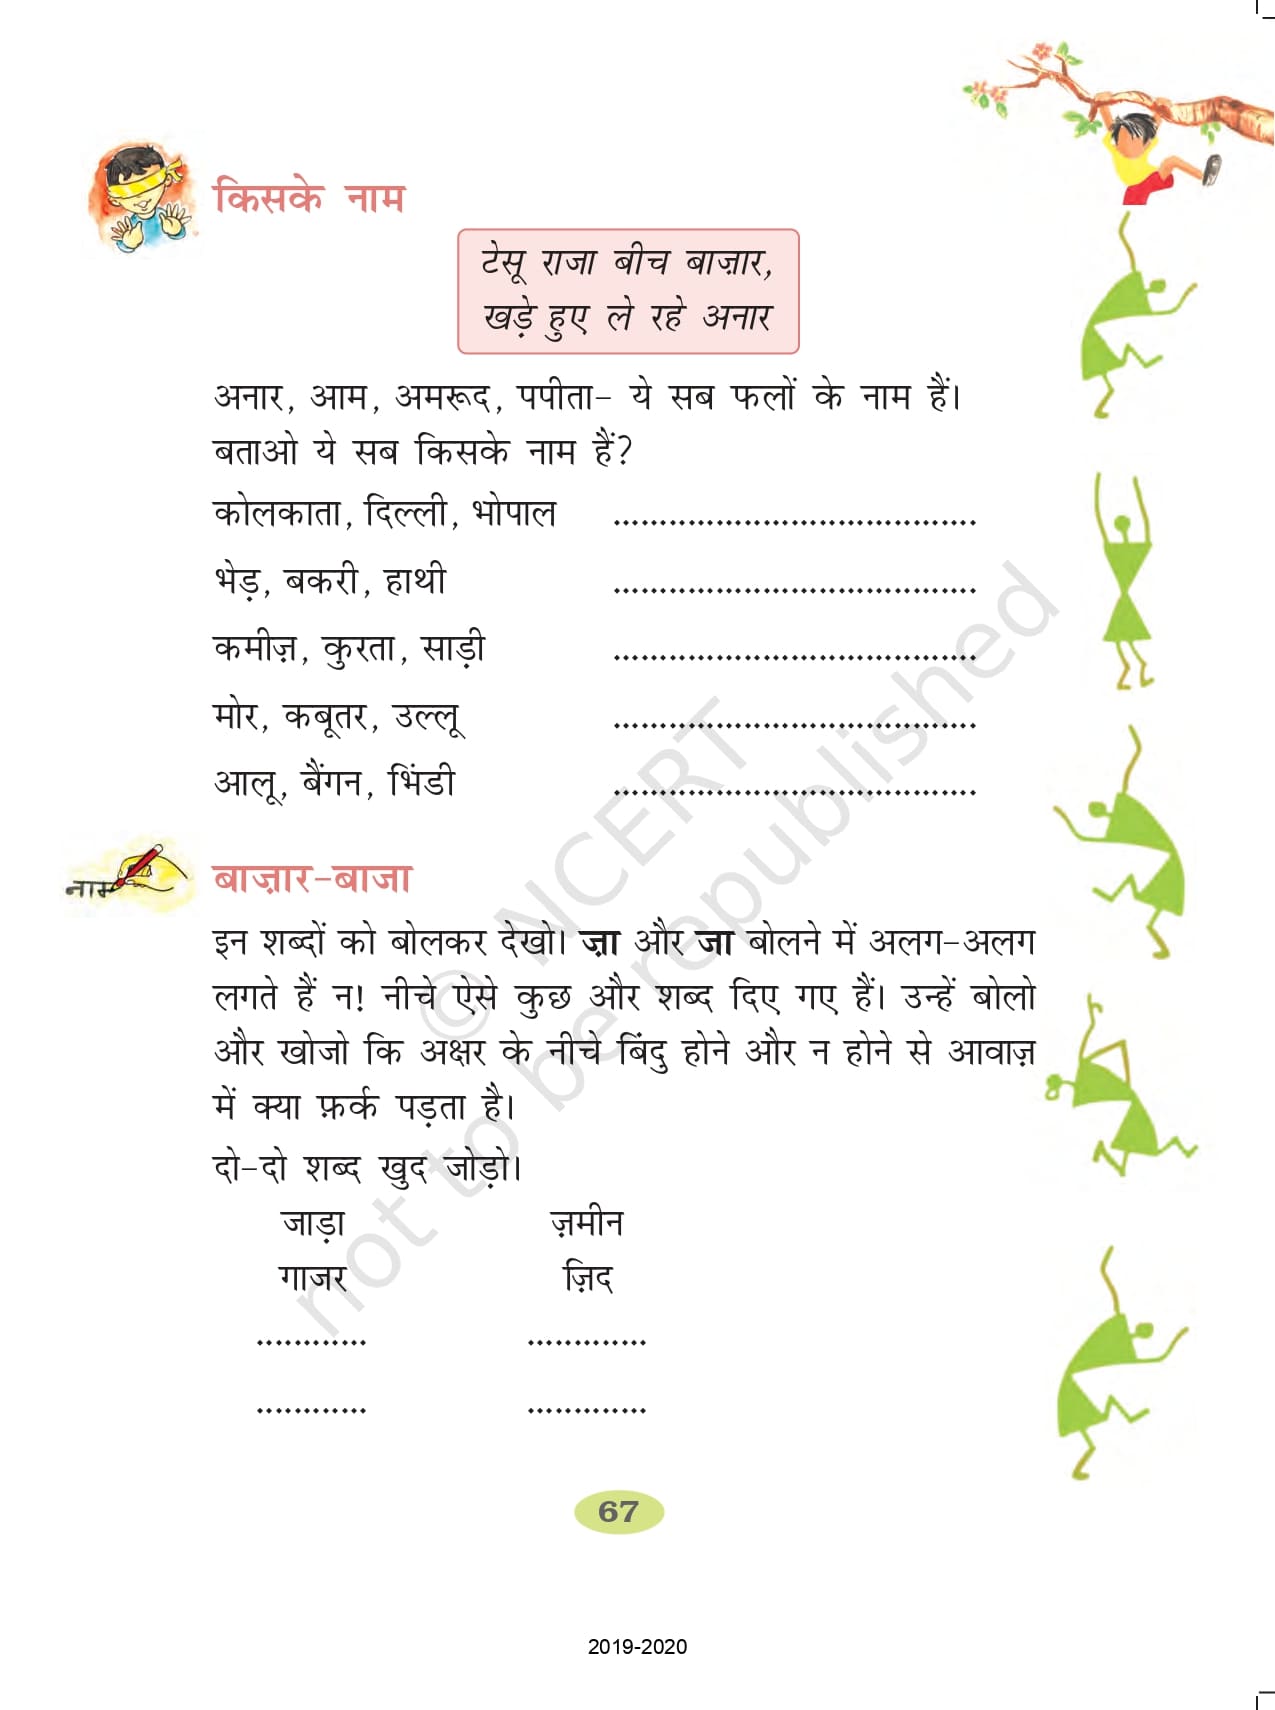 किसके नाम
टेसू राजा बीच बाज़ार,
खड़े हुए ले रहे अनार
अनार, आम, अमरूद, पपीता– ये सब फलों के नाम हैं।
बताओ ये सब किसके नाम हैं?
कोलकाता, दिल्ली, भोपाल .......................................
भेड़, बकरी, हाथी .......................................
कमीज़, कुरता, साड़ी .......................................
मोर, कबूतर, उल्लू .......................................
आलू, बैंगन, भिंडी .......................................
नाम
बाज़ार–बाजा
इन शब्दों को बोलकर देखो। ज़ा और जा बोलने में अलग–अलग
लगते हैं न! नीचे ऐसे कुछ और शब्द दिए गए हैं। उन्हें बोलो
और खोजो कि अक्षर के नीचे बिंदु होने और न होने से आवाज़
में क्या फ़र्क पड़ता है।
दो–दो शब्द खुद जोड़ो।
जाड़ा ज़मीन
गाजर ज़िद
............ .............
............ .............
© NCERT
not to be republished
67
2019-2020